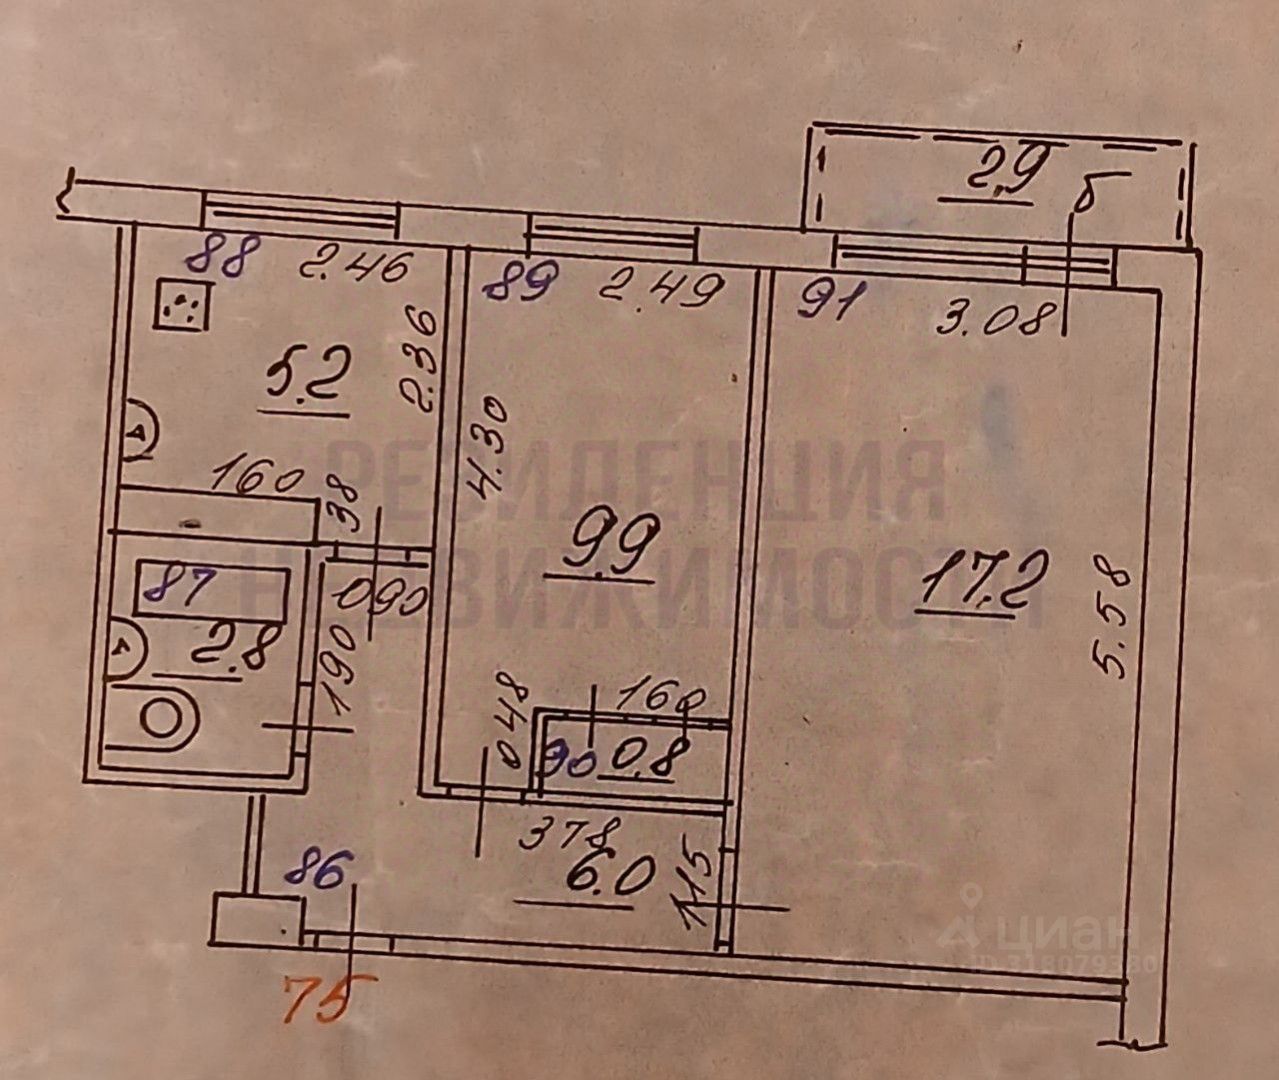 2,9
б
88
2.46
89
2.49
91
3.08
5.2
2.36
4.30
160
38
РЕЗИДЕНЦИЯ
НЕДВИЖИМОСТИ
9.9
17.2
5.58
87
090
2.8
190
048
160
90
0.8
378
6.0
115
86
75
циан
ID 318079380